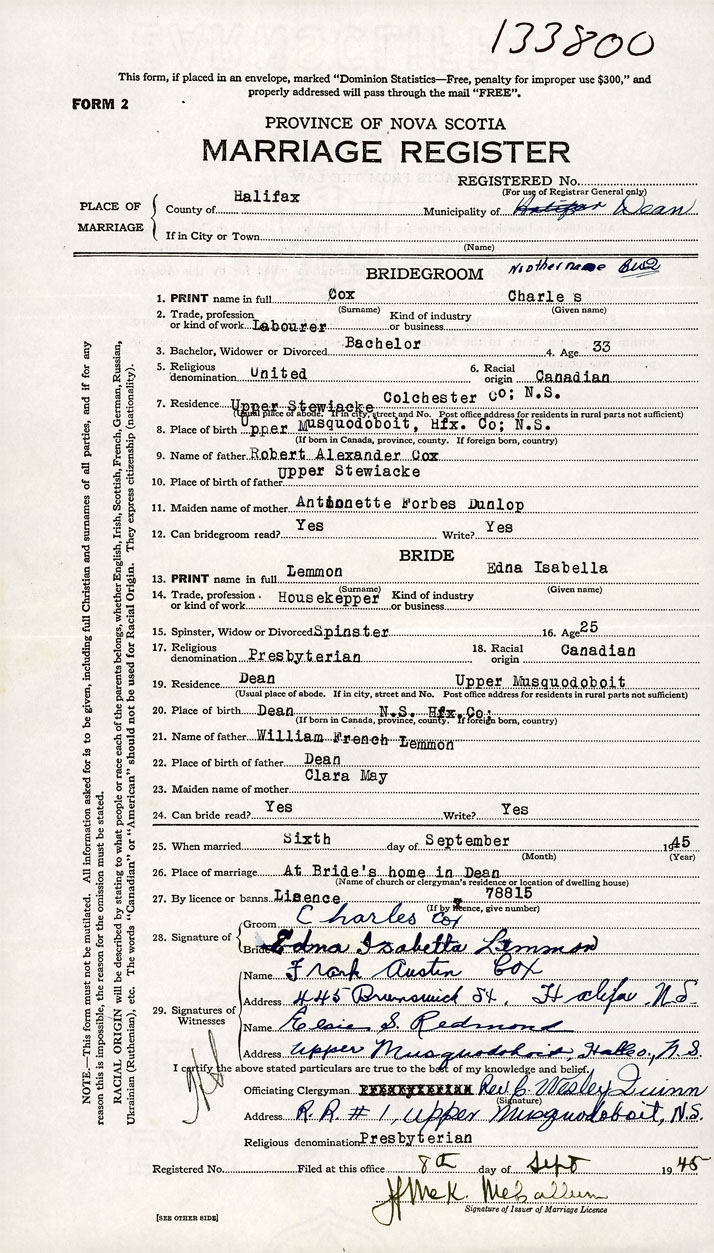 133800
This form, if placed in an envelope, marked "Dominion Statistics—Free, penalty for improper use $300," and
properly addressed will pass through the mail "FREE".
FORM 2
PROVINCE OF NOVA SCOTIA
MARRIAGE REGISTER
REGISTERED No.
(For use of Registrar General only)
PLACE OF MARRIAGE
County of Halifax Municipality of Halifax Dean
If in City or Town
(Name)
BRIDEGROOM No other name
1. PRINT name in full Cox Charle s
(Surname) (Given name)
2. Trade, profession or kind of work Labourer Kind of industry or business
3. Bachelor, Widower or Divorced Bachelor 4. Age 33
5. Religious denomination United 6. Racial origin Canadian
7. Residence Upper Stewiacke Colchester Co; N.S.
(Usual place of abode. If in city, street and No. Post office address for residents in rural parts not sufficient)
8. Place of birth Upper Musquodoboit, Hfx. Co; N.S.
(If born in Canada, province, county. If foreign born, country)
9. Name of father Robert Alexander Cox
10. Place of birth of father Upper Stewiacke
11. Maiden name of mother Antionette Forbes Dunlop
12. Can bridegroom read? Yes Write? Yes
BRIDE
13. PRINT name in full Lemmon Edna Isabella
(Surname) (Given name)
14. Trade, profession or kind of work Housekepper Kind of industry or business
15. Spinster, Widow or Divorced Spinster 16. Age 25
17. Religious denomination Presbyterian 18. Racial origin Canadian
19. Residence Dean Upper Musquodoboit
(Usual place of abode. If in city, street and No. Post office address for residents in rural parts not sufficient)
20. Place of birth Dean N.S. Hfx.Co;
(If born in Canada, province, county. If foreign born, country)
21. Name of father William French Lemmon
22. Place of birth of father Dean
23. Maiden name of mother Clara May
24. Can bride read? Yes Write? Yes
25. When married Sixth day of September 1945
(Month) (Year)
26. Place of marriage At Bride's home in Dean
(Name of church or clergyman's residence or location of dwelling house)
27. By licence or banns Lisence 78815
(If by licence, give number)
28. Signature of
Groom Charles Cox
Bride Edna Izabella Lemmon
29. Signatures of Witnesses
Name Frank Austin Cox
Address 445 Brunswick St, Halifax, N.S.
Name Elsie S. Redmond
Address Upper Musquodoboid, N.S.
I certify the above stated particulars are true to the best of my knowledge and belief.
Officiating Clergyman Rev. C. Wesley Quinn
(Signature)
Address R.R. # 1, Upper Musquodoboit, N.S.
Religious denomination Presbyterian
Registered No. Filed at this office 8th day of Sept 1945
McCallum
Signature of Issuer of Marriage Licence
[SEE OTHER SIDE]
NOTE.—This form must not be mutilated. All information asked for is to be given, including full Christian and surnames of all parties, and if for any
reason this is impossible, the reason for the omission must be stated.
RACIAL ORIGIN will be described by stating to what people or race each of the parents belongs, whether English, Irish, Scottish, French, German, Russian,
Ukrainian (Ruthenian), etc. The words "Canadian" or "American" should not be used for Racial Origin. They express citizenship (nationality).